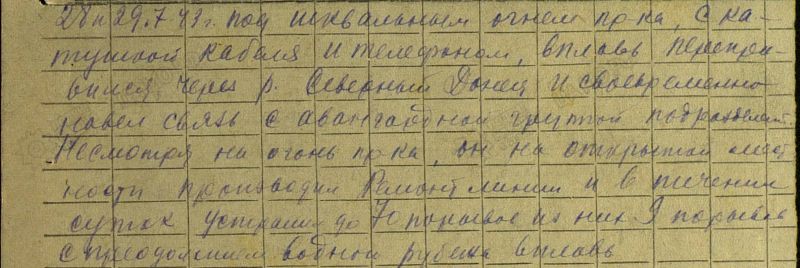 28 и 29.7.43 г. под шквальным огнем пр-ка, с ка-
тушкой кабеля и телефоном, вплавь перепра-
вился через р. Северный Донец и своевременно
навел связь с авангардной группой подразделений.
Несмотря на огонь пр-ка, он на открытой мест-
ности производил ремонт линии и в течении
суток устранил до 70 порывов из них 9 порывов
с преодолением водной рубежа вплавь